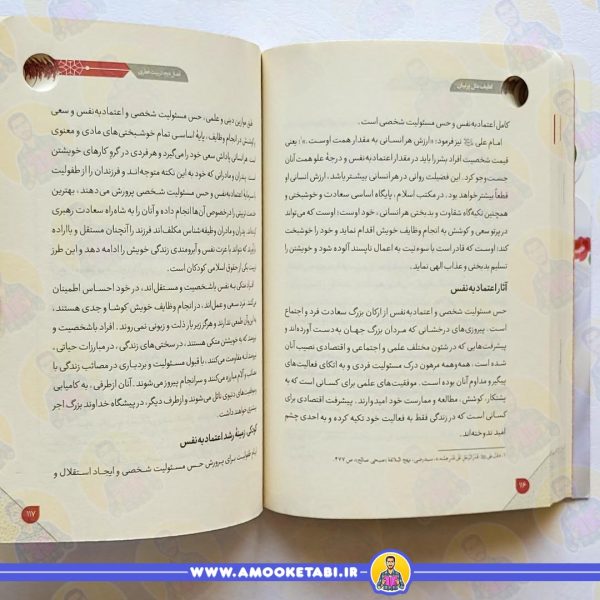 لطیف مثل پرنیان
کامل اعتمادبه‌نفس و حس مسئولیت شخصی است.
امام علی نیز فرمود: «ارزش هر انسانی به مقدار همت اوست.»؛ یعنی
قیمت شخصیت افراد بشر را باید در مقدار اعتمادبه‌نفس و درجهٔ علو همت آنان
جست‌وجو کرد. این فضیلت روانی در هر انسانی بیشتر باشد، ارزش انسانی او
قطعاً بیشتر خواهد بود. در مکتب اسلام، پایگاه اساسی سعادت و خوشبختی و
همچنین تکیه‌گاه شقاوت و بدبختی هر انسانی، خود اوست؛ اوست که می‌تواند
در پرتو سعی و کوشش به انجام وظایف خویش اقدام نماید و خود را خوشبخت
کند؛ اوست که قادر است با سوء نیت به اعمال ناپسند آلوده شود و خویشتن را
تسلیم بدبختی و عذاب الهی نماید.
آثار اعتمادبه‌نفس
حس مسئولیت شخصی و اعتمادبه‌نفس از ارکان بزرگ سعادت فرد و اجتماع
است. پیروزی‌های درخشانی که مردان بزرگ جهان به‌دست آورده‌اند و
پیشرفت‌هایی که در شئون مختلف علمی و اجتماعی و اقتصادی نصیب آنان
شده است، همه‌وهمه مرهون درک مسئولیت فردی و به اتکای فعالیت‌های
پیگیر و مداوم آنان بوده است. موفقیت‌های علمی برای کسانی است که به
پشتکار، کوشش، مطالعه و ممارست خود امیدوارند. پیشرفت اقتصادی برای
کسانی است که در زندگی فقط به فعالیت خود تکیه کرده و به احدی چشم
امید ندوخته‌اند.
۱۱۶
طبق موازین دینی و علمی، حس مسئولیت شخصی و اعتمادبه‌نفس و سعی
و کوشش در انجام وظایف، پایهٔ اساسی تمام خوشبختی‌های مادی و معنوی
است. هر انسانی پاداش سعی خود را می‌گیرد و هر فردی در گرو کارهای خویشتن
است. پدران و مادرانی که خود به این نکته متوجه‌اند و فرزندان را از طفولیت
با سرمایهٔ اعتمادبه‌نفس و حس مسئولیت شخصی پرورش می‌دهند، بهترین
خدمت تربیتی را در خصوص آن‌ها انجام داده و آنان را به شاه‌راه سعادت رهبری
کرده‌اند. پدران و مادران وظیفه‌شناس مکلف‌اند فرزند را آنچنان مستقل و بااراده
بار آورند که بتواند با عزت نفس و آبرومندی زندگی خویش را ادامه دهد و این طرز
تربیت یکی از حقوق اسلامی کودکان است.
افراد متکی به نفس و باشخصیت و مستقل‌اند، در خود احساس اطمینان
می‌کنند، مرد سعی و عمل‌اند، در انجام وظایف خویش کوشا و جدی هستند،
روان طبیعی ندارند و هرگز زیر بار ذلت و زبونی نمی‌روند. افراد باشخصیت و
به خویشتن متکی هستند، در سختی‌های زندگی، در مبارزات حیاتی،
مقاومت می‌کنند، با قبول مسئولیت و بردباری در مصائب زندگی با
مبارزه می‌کنند و سرانجام پیروز می‌شوند. آنان ازطرفی، به کامیابی و
موفقیت‌های دنیوی نائل می‌شوند و ازطرف دیگر، در پیشگاه خداوند بزرگ اجر
بیشتری خواهند داشت.
کودکی، زمینهٔ رشد اعتمادبه‌نفس
ایام طفولیت برای پرورش حس مسئولیت شخصی و ایجاد استقلال و
۱۱۷
WWW.AMOOKETABI.IR